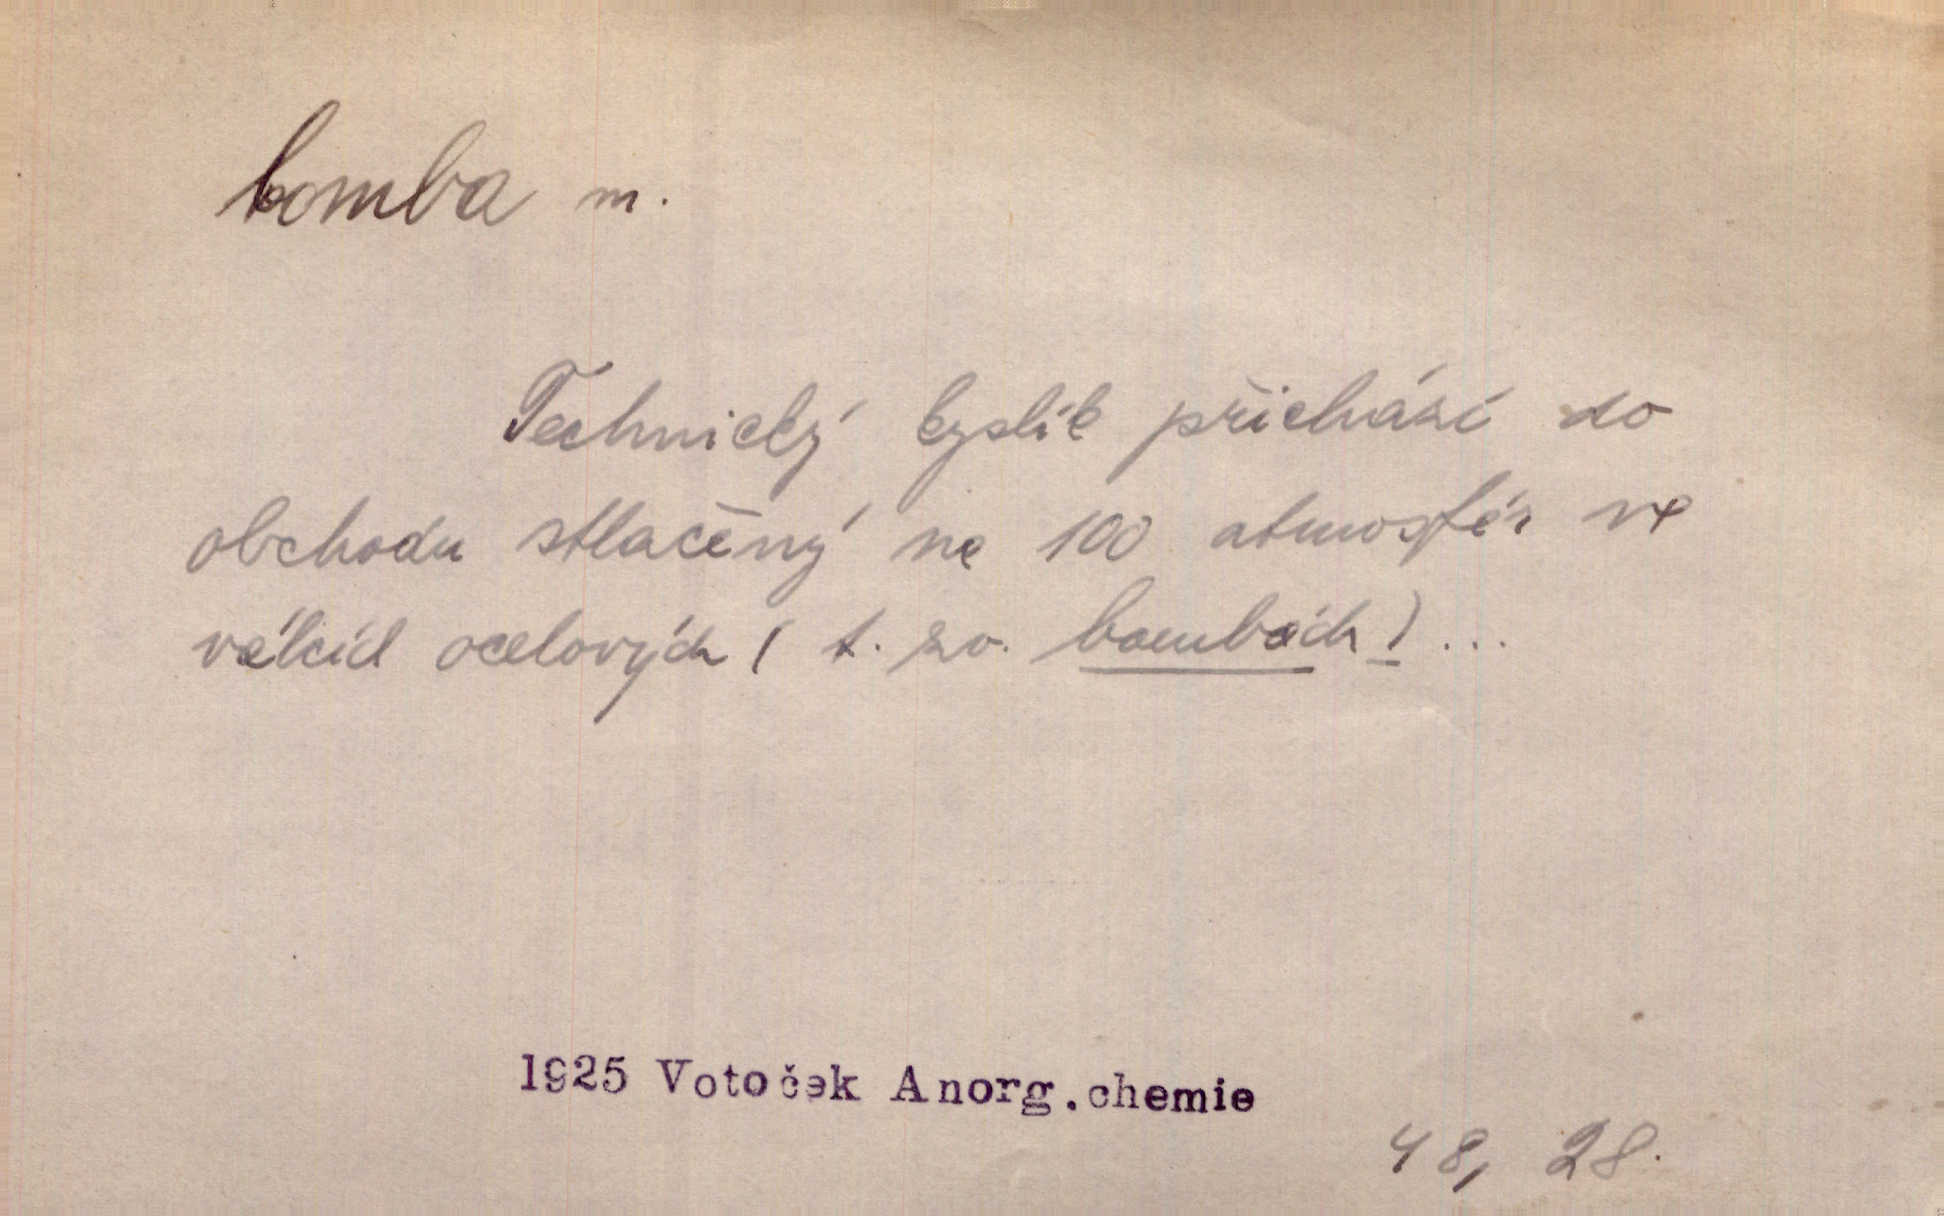 bomba m.
Technický kyslík přichází do
obchodu stlačený na 100 atmosfér ve
válcích ocelových ( t. zv. bombách ) ...
1925 Votoček Anorg.chemie
48, 28.